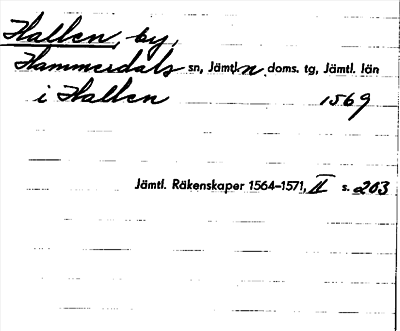 Hallen, by,
Hammerdals sn, Jämtl. n. doms. tg, Jämtl. län
i Hallen 1569
Jämtl. Räkenskaper 1564–1571, II s. 203